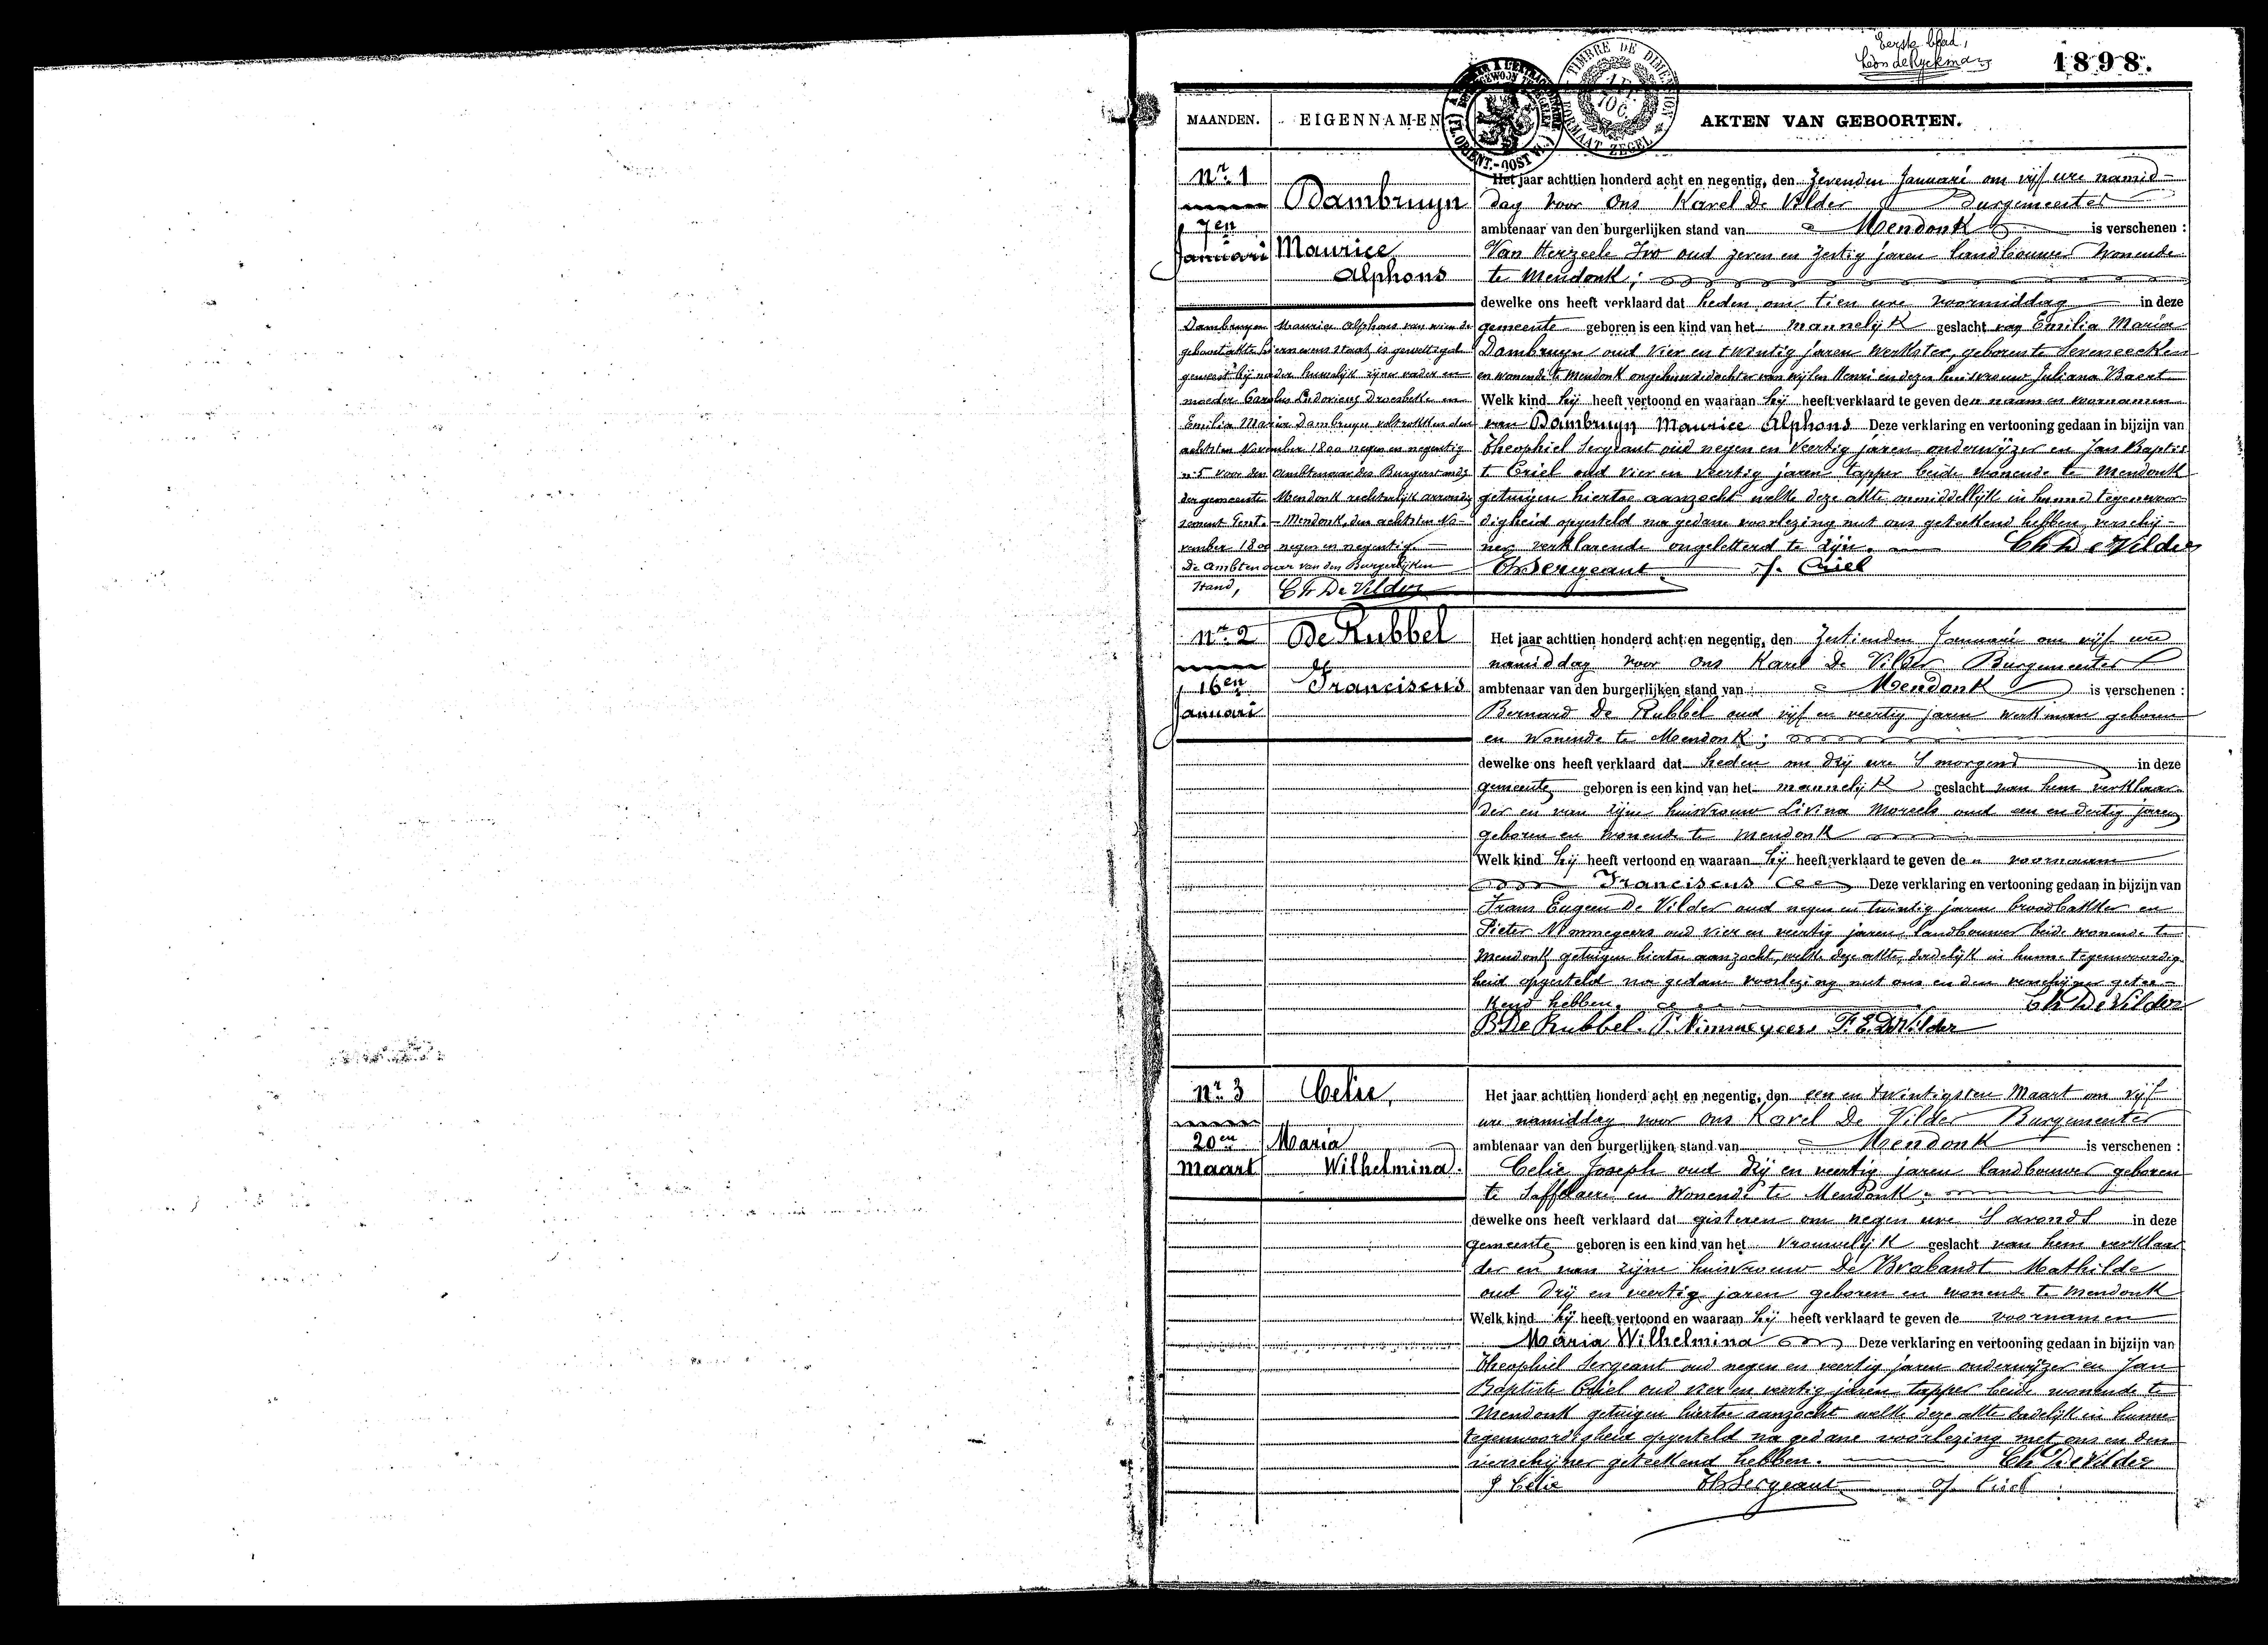 Eerste blad,
Leon de Ryckman
1898.
TIMBRE DE DIMENSION
FORMAAT ZEGEL
(FL. ORIENT.-OOST VL.)
MAANDEN. EIGENNAMEN AKTEN VAN GEBOORTEN.
Nr. 1
7en
Januari
Dambruyn
Maurice
Alphons
Het jaar achttien honderd acht en negentig, den zevenden Januari om vijf ure namid-
dag voor Ons Karel De Vilder Burgemeester
ambtenaar van den burgerlijken stand van Mendonk is verschenen :
Van Herzeele Ivo oud zeven en zestig jaren landbouwer wonende
te Mendonk;
dewelke ons heeft verklaard dat heden om tien ure voormiddag in deze
gemeente geboren is een kind van het mannelijk geslacht van Emilia Maria
Dambruyn oud vier en twintig jaren werkster, geboren te Seveneecken
en wonende te Mendonk ongehuwde dochter van wijlen Henri en dezes huisvrouw Juliana Baert
Welk kind hij heeft vertoond en waaraan hij heeft verklaard te geven den naam en voornamen
van Dambruyn Maurice Alphons Deze verklaring en vertooning gedaan in bijzijn van
Theophiel Sergeant oud negen en veertig jaren onderwijzer en Jan Baptis
t Criel oud vier en veertig jaren tapper beide wonende te Mendonk
getuigen hiertoe aanzocht welke deze akte onmiddellijk in hunne tegenwoor-
digheid opgesteld na gedane voorlezing met ons geteekend hebben, verschij-
ner verklarende ongeletterd te zijn. Ch De Vilder
Th Sergeant J. Criel
Dambruyn Maurice Alphons van wien de
geboorteakte hiernevens staat, is gewettigd
geweest bij nader huwelijk zijner vader en
moeder Carolus Ludovicus Droesbeke en
Emilia Maria Dambruyn voltrokken den
achtsten November 1800 negen en negentig
nr 5 voor den Ambtenaar des Burgerstands
der gemeente Mendonk rechterlijk arrondis
sement Gent. - Mendonk, den achtsten No-
vember 1800 negen en negentig. -
De Ambtenaar van den Burgerlijken
Stand, Ch De Vilder
Nr. 2
16en
Januari
De Rubbel
Franciscus
Het jaar achttien honderd acht en negentig, den zestienden Januari om vijf ure
namiddag voor Ons Karel De Vilder Burgemeester
ambtenaar van den burgerlijken stand van Mendonk is verschenen :
Bernard De Rubbel oud vijf en veertig jaren werkman geboren
en wonende te Mendonk;
dewelke ons heeft verklaard dat heden om drij ure 's morgends in deze
gemeente geboren is een kind van het mannelijk geslacht van hem verklaar-
der en van zijne huisvrouw Livina Moreels oud een en dertig jaren
geboren en wonende te Mendonk
Welk kind hij heeft vertoond en waaraan hij heeft verklaard te geven den voornaam
Franciscus Deze verklaring en vertooning gedaan in bijzijn van
Frans Eugeen De Vilder oud negen en twintig jaren broodbakker en
Pieter Nimmegeers oud vier en veertig jaren landbouwer beide wonende te
Mendonk getuigen hiertoe aanzocht, welke deze akte dadelijk in hunne tegenwoordig-
heid opgesteld na gedane voorlezing met ons en den verschijner getee-
kend hebben. Ch De Vilder
B. De Rubbel. P. Nimmegeers F. E. De Vilder
Nr. 3
20en
Maart
Celie,
Maria
Wilhelmina.
Het jaar achttien honderd acht en negentig, den een en twintigsten Maart om vijf
ure namiddag voor Ons Karel De Vilder Burgemeester
ambtenaar van den burgerlijken stand van Mendonk is verschenen :
Celie Joseph oud drij en veertig jaren landbouwer geboren
te Saffelaere en wonende te Mendonk;
dewelke ons heeft verklaard dat gisteren om negen ure 's avonds in deze
gemeente geboren is een kind van het vrouwelijk geslacht van hem verklaar
der en van zijne huisvrouw De Brabandt Mathilde
oud drij en veertig jaren geboren en wonende te Mendonk
Welk kind hij heeft vertoond en waaraan hij heeft verklaard te geven de voornamen
Maria Wilhelmina Deze verklaring en vertooning gedaan in bijzijn van
Theophiel Sergeant oud negen en veertig jaren onderwijzer en Jan
Baptiste Criel oud vier en veertig jaren tapper beide wonende te
Mendonk getuigen hiertoe aanzocht welke deze akte dadelijk in hunne
tegenwoordigheid opgesteld na gedane voorlezing met ons en den
verschijner geteekend hebben. Ch De Vilder
J Celie Th Sergeant J Criel